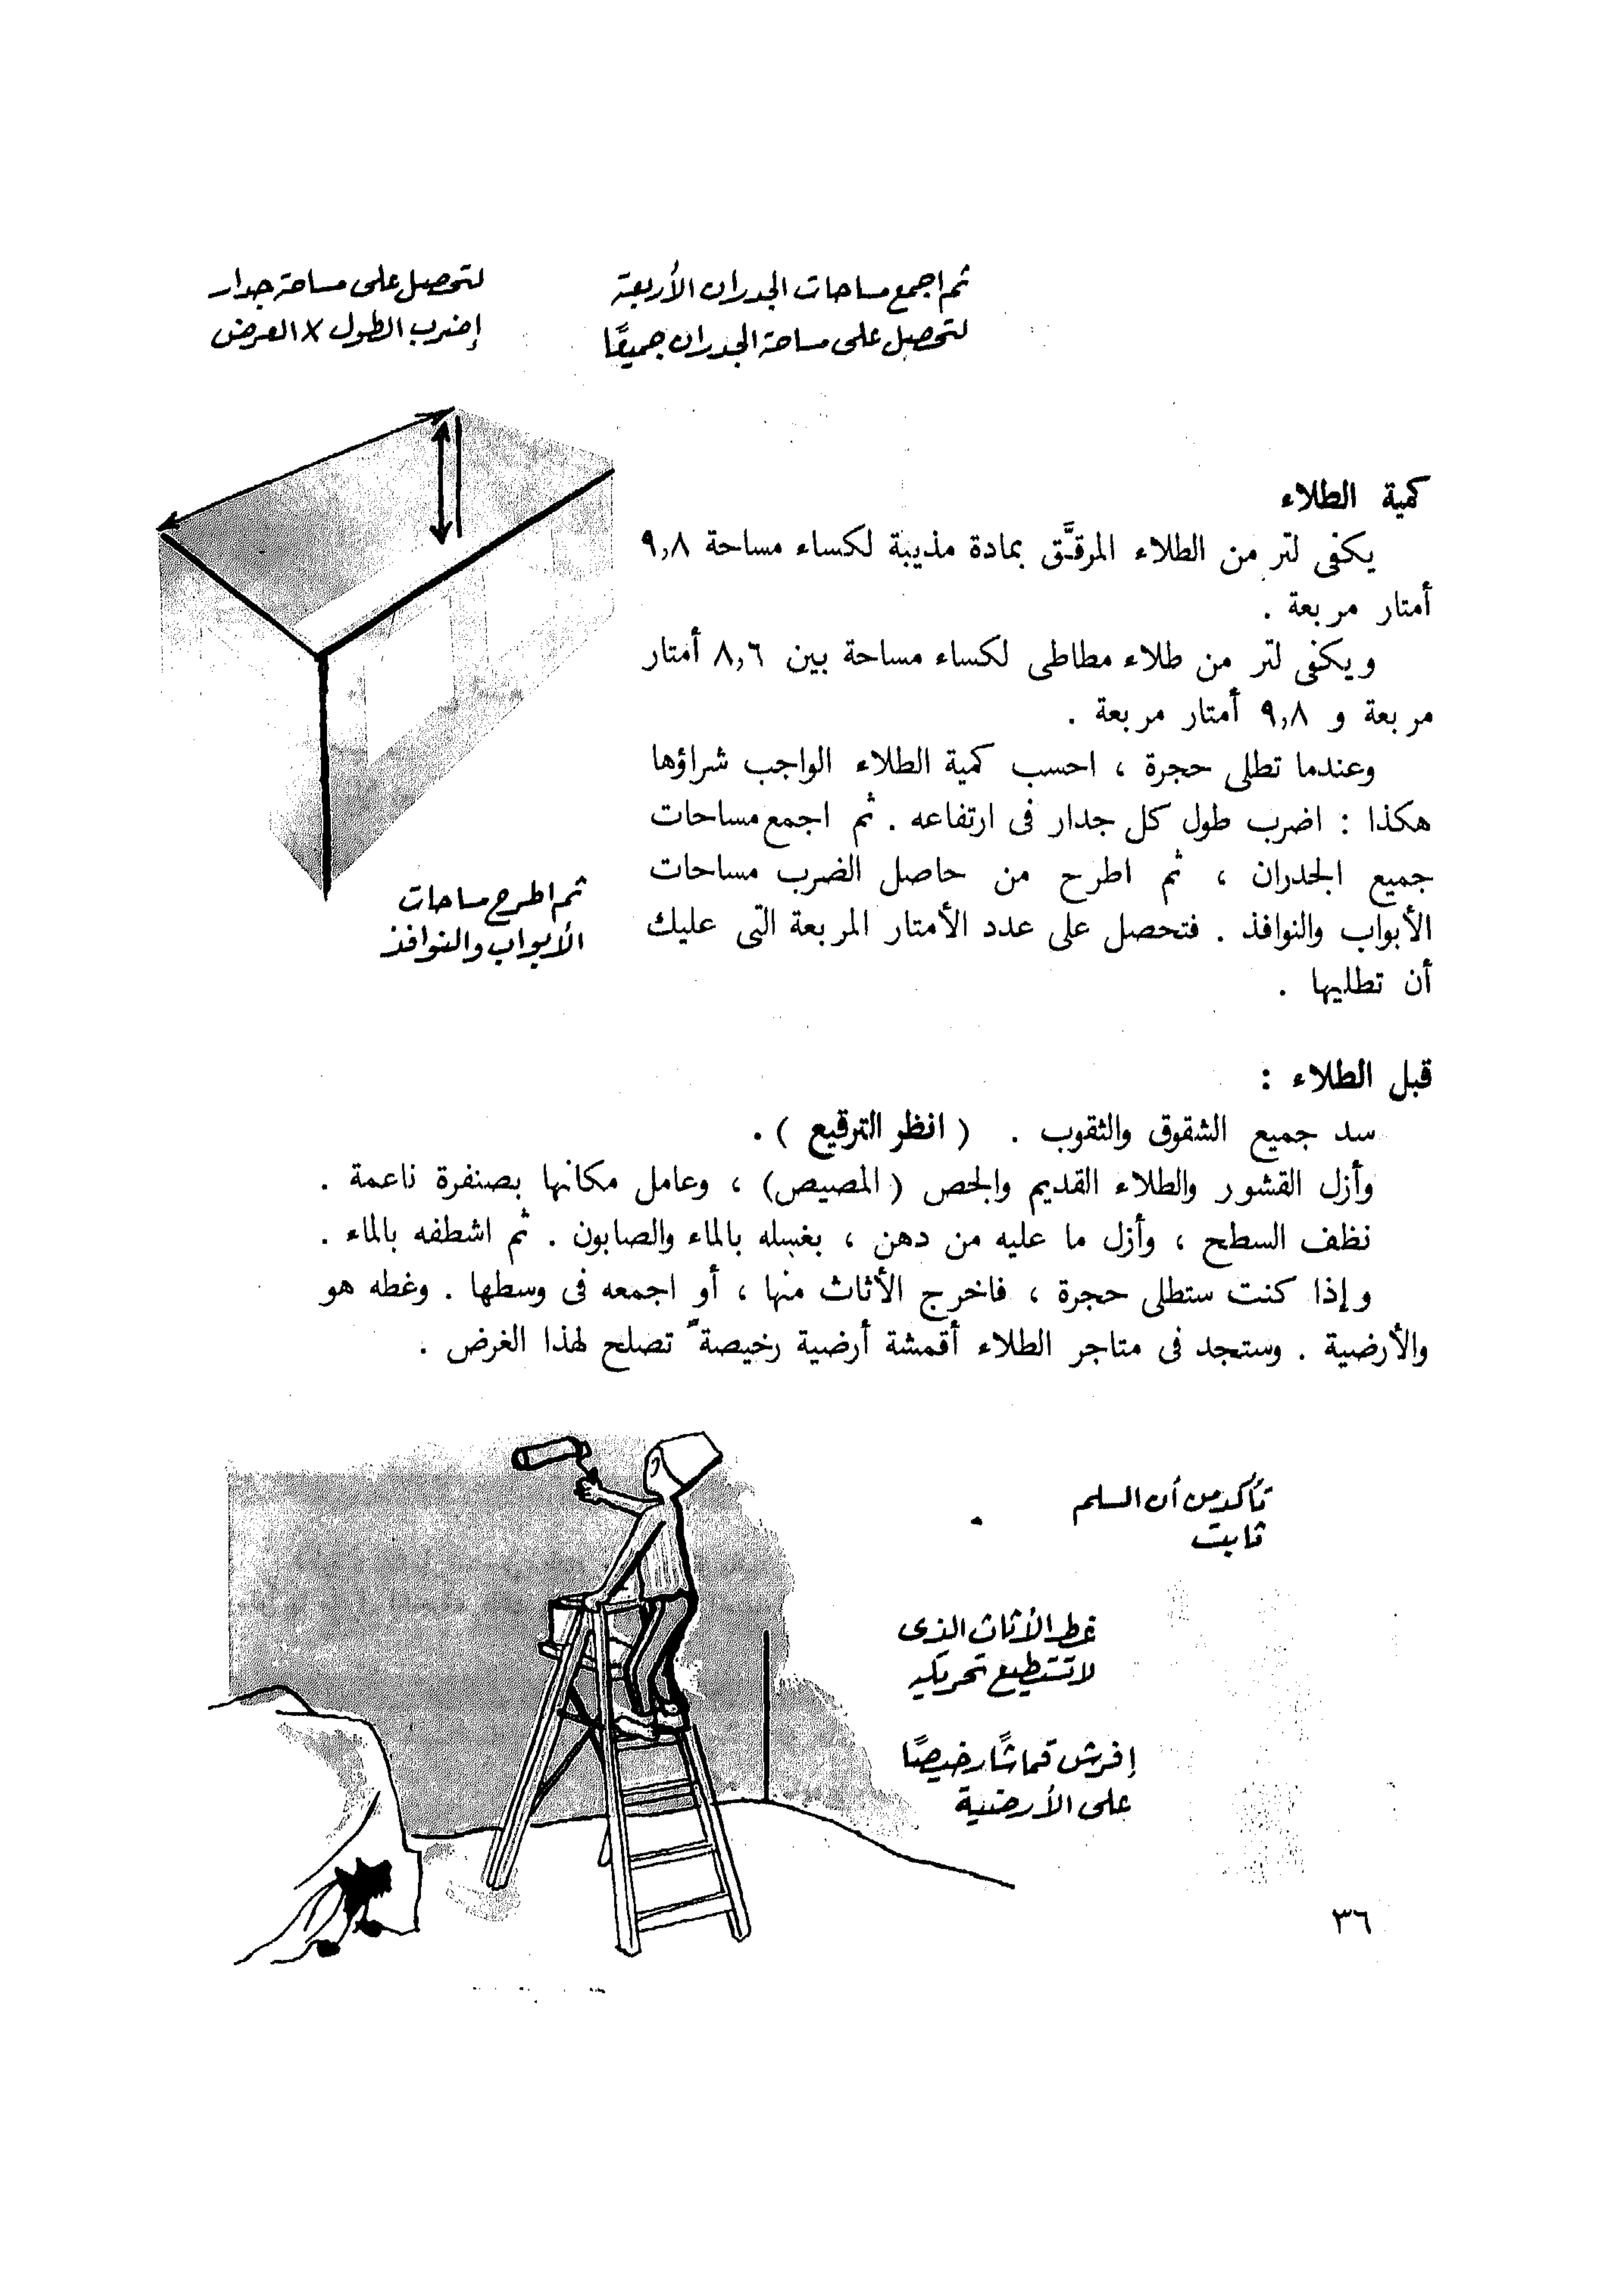 لتحصل على مساحة جدار
إضرب الطول × العرض
ثم اجمع مساحات الجدران الأربعة
لتحصل على مساحة الجدران جميعًا
كمية الطلاء
يكفى لتر من الطلاء المرقَّق بمادة مذيبة لكساء مساحة ٩,٨
أمتار مربعة .
ويكفى لتر من طلاء مطاطى لكساء مساحة بين ٨,٦ أمتار
مربعة و ٩,٨ أمتار مربعة .
وعندما تطلى حجرة ، احسب كمية الطلاء الواجب شراؤها
هكذا : اضرب طول كل جدار فى ارتفاعه . ثم اجمع مساحات
جميع الجدران ، ثم اطرح من حاصل الضرب مساحات
الأبواب والنوافذ . فتحصل على عدد الأمتار المربعة التى عليك
أن تطليها .
ثم اطرح مساحات
الأبواب والنوافذ
قبل الطلاء :
سد جميع الشقوق والثقوب . ( انظر الترقيع ) .
وأزل القشور والطلاء القديم والجص ( المصيص ) ، وعامل مكانها بصنفرة ناعمة .
نظف السطح ، وأزل ما عليه من دهن ، بغسله بالماء والصابون . ثم اشطفه بالماء .
وإذا كنت ستطلى حجرة ، فاخرج الأثاث منها ، أو اجمعه فى وسطها . وغطه هو
والأرضية . وستجد فى متاجر الطلاء أقمشة أرضية رخيصة تصلح لهذا الغرض .
تأكد من أن السلم
ثابت
غط الأثاث الذى
لا تستطيع تحريكه
إفرش قماشًا رخيصًا
على الأرضية
٣٦